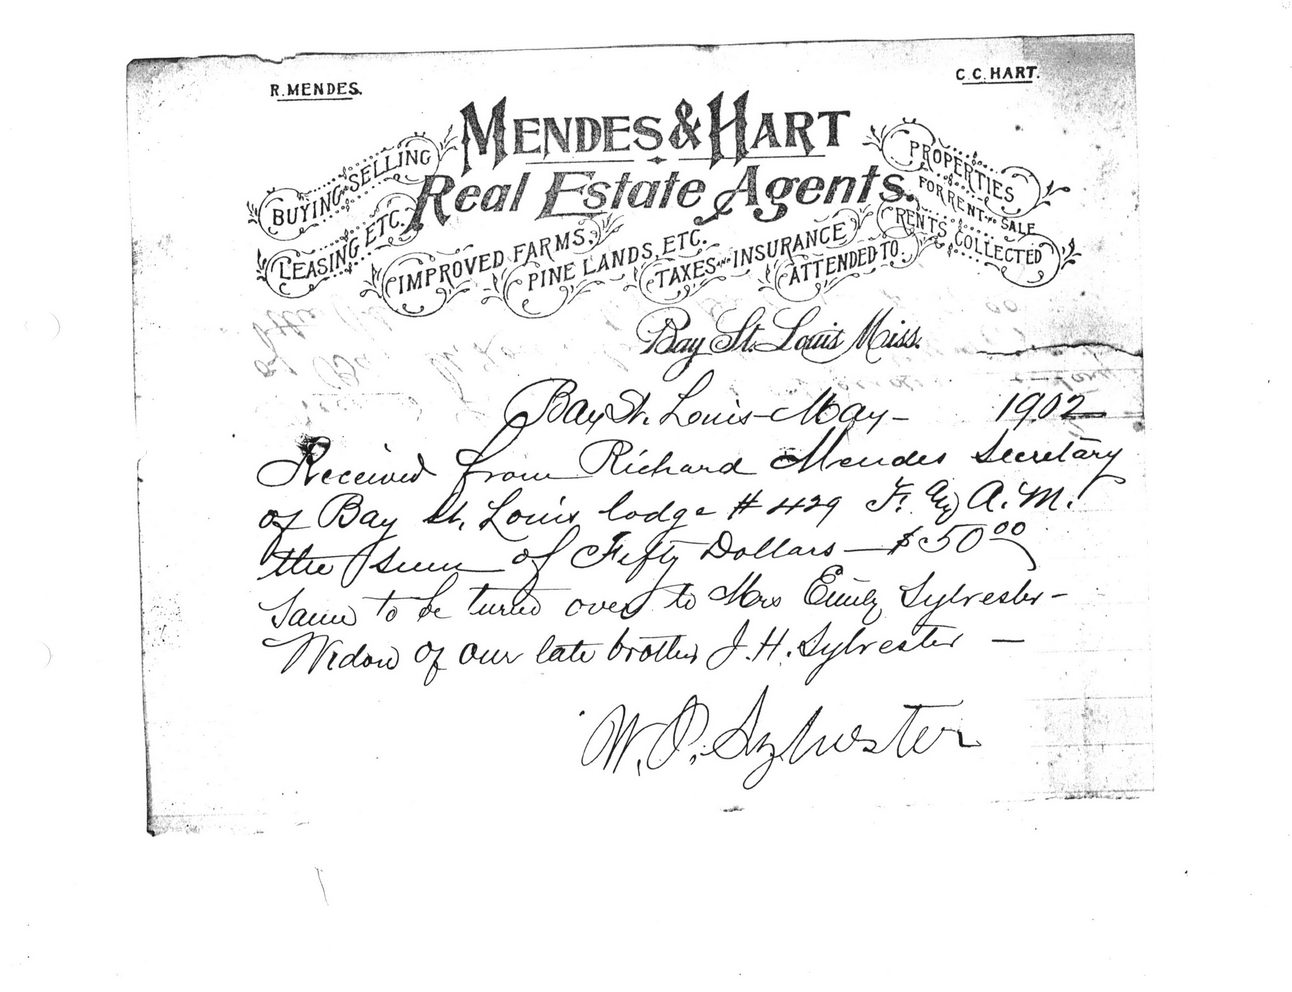 R. MENDES.
C. C. HART.
MENDES & HART
Real Estate Agents.
BUYING AND SELLING
LEASING ETC.
IMPROVED FARMS.
PINE LANDS, ETC.
TAXES AND INSURANCE
ATTENDED TO.
PROPERTIES
FOR RENT OR SALE
RENTS COLLECTED
Bay St. Louis Miss.
Bay St. Louis - May - 1902
Received from Richard Mendes Secretary
of Bay St. Louis lodge # 429 F. & A. M.
the sum of Fifty Dollars — $50.00
Same to be turned over to Mrs Emily Sylvester -
Widow of our late brother J. H. Sylvester —
W. P. Sylvester